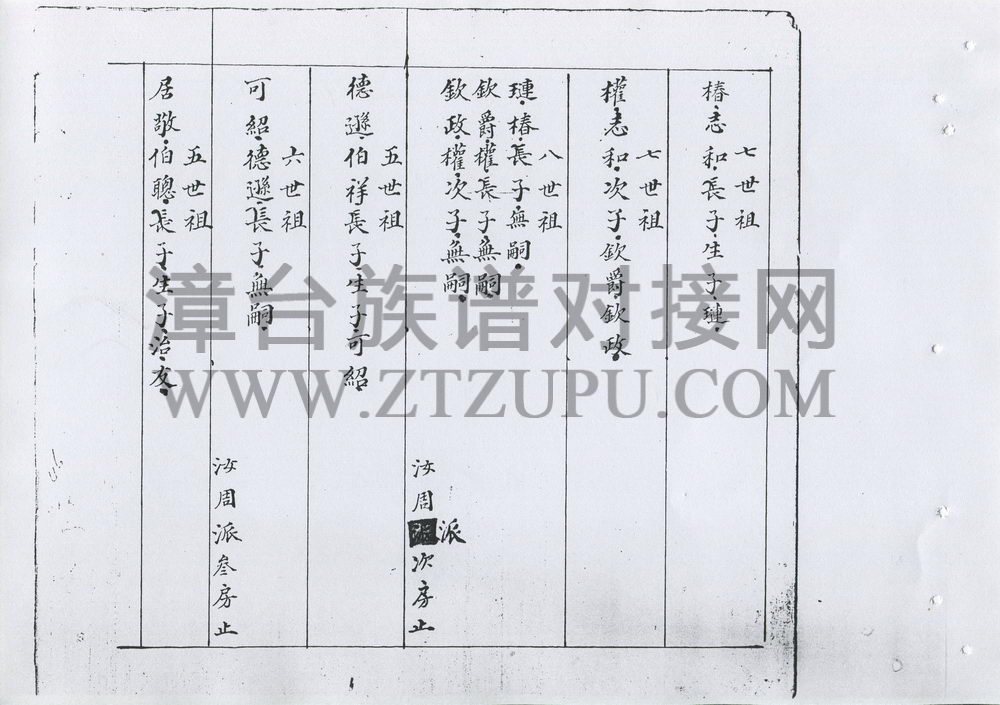 七世祖
椿恚和長子生子璉
七世祖
權恚和次子欽爵欽政
八世祖
璉椿長子無嗣
欽爵權長子無嗣
欽政權次子無嗣
汝周派次房止
五世祖
德遜伯祥長子生子可紹
六世祖
可紹德遜長子無嗣
汝周派叄房止
五世祖
居敬伯聰長子生子治友
漳台族谱对接网
WWW.ZTZUPU.COM